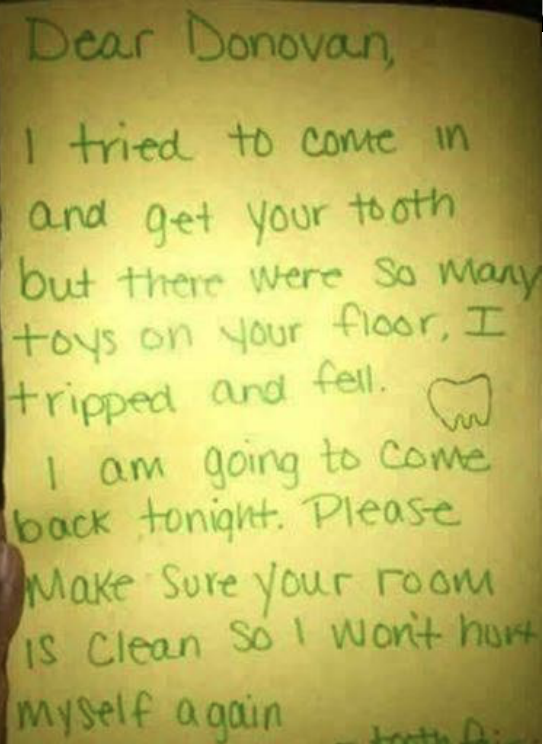 Dear Donovan,
I tried to come in
and get your tooth
but there were so many
toys on your floor, I
tripped and fell.
I am going to come
back tonight. Please
Make Sure your room
is Clean So I won't hurt
myself again
tooth